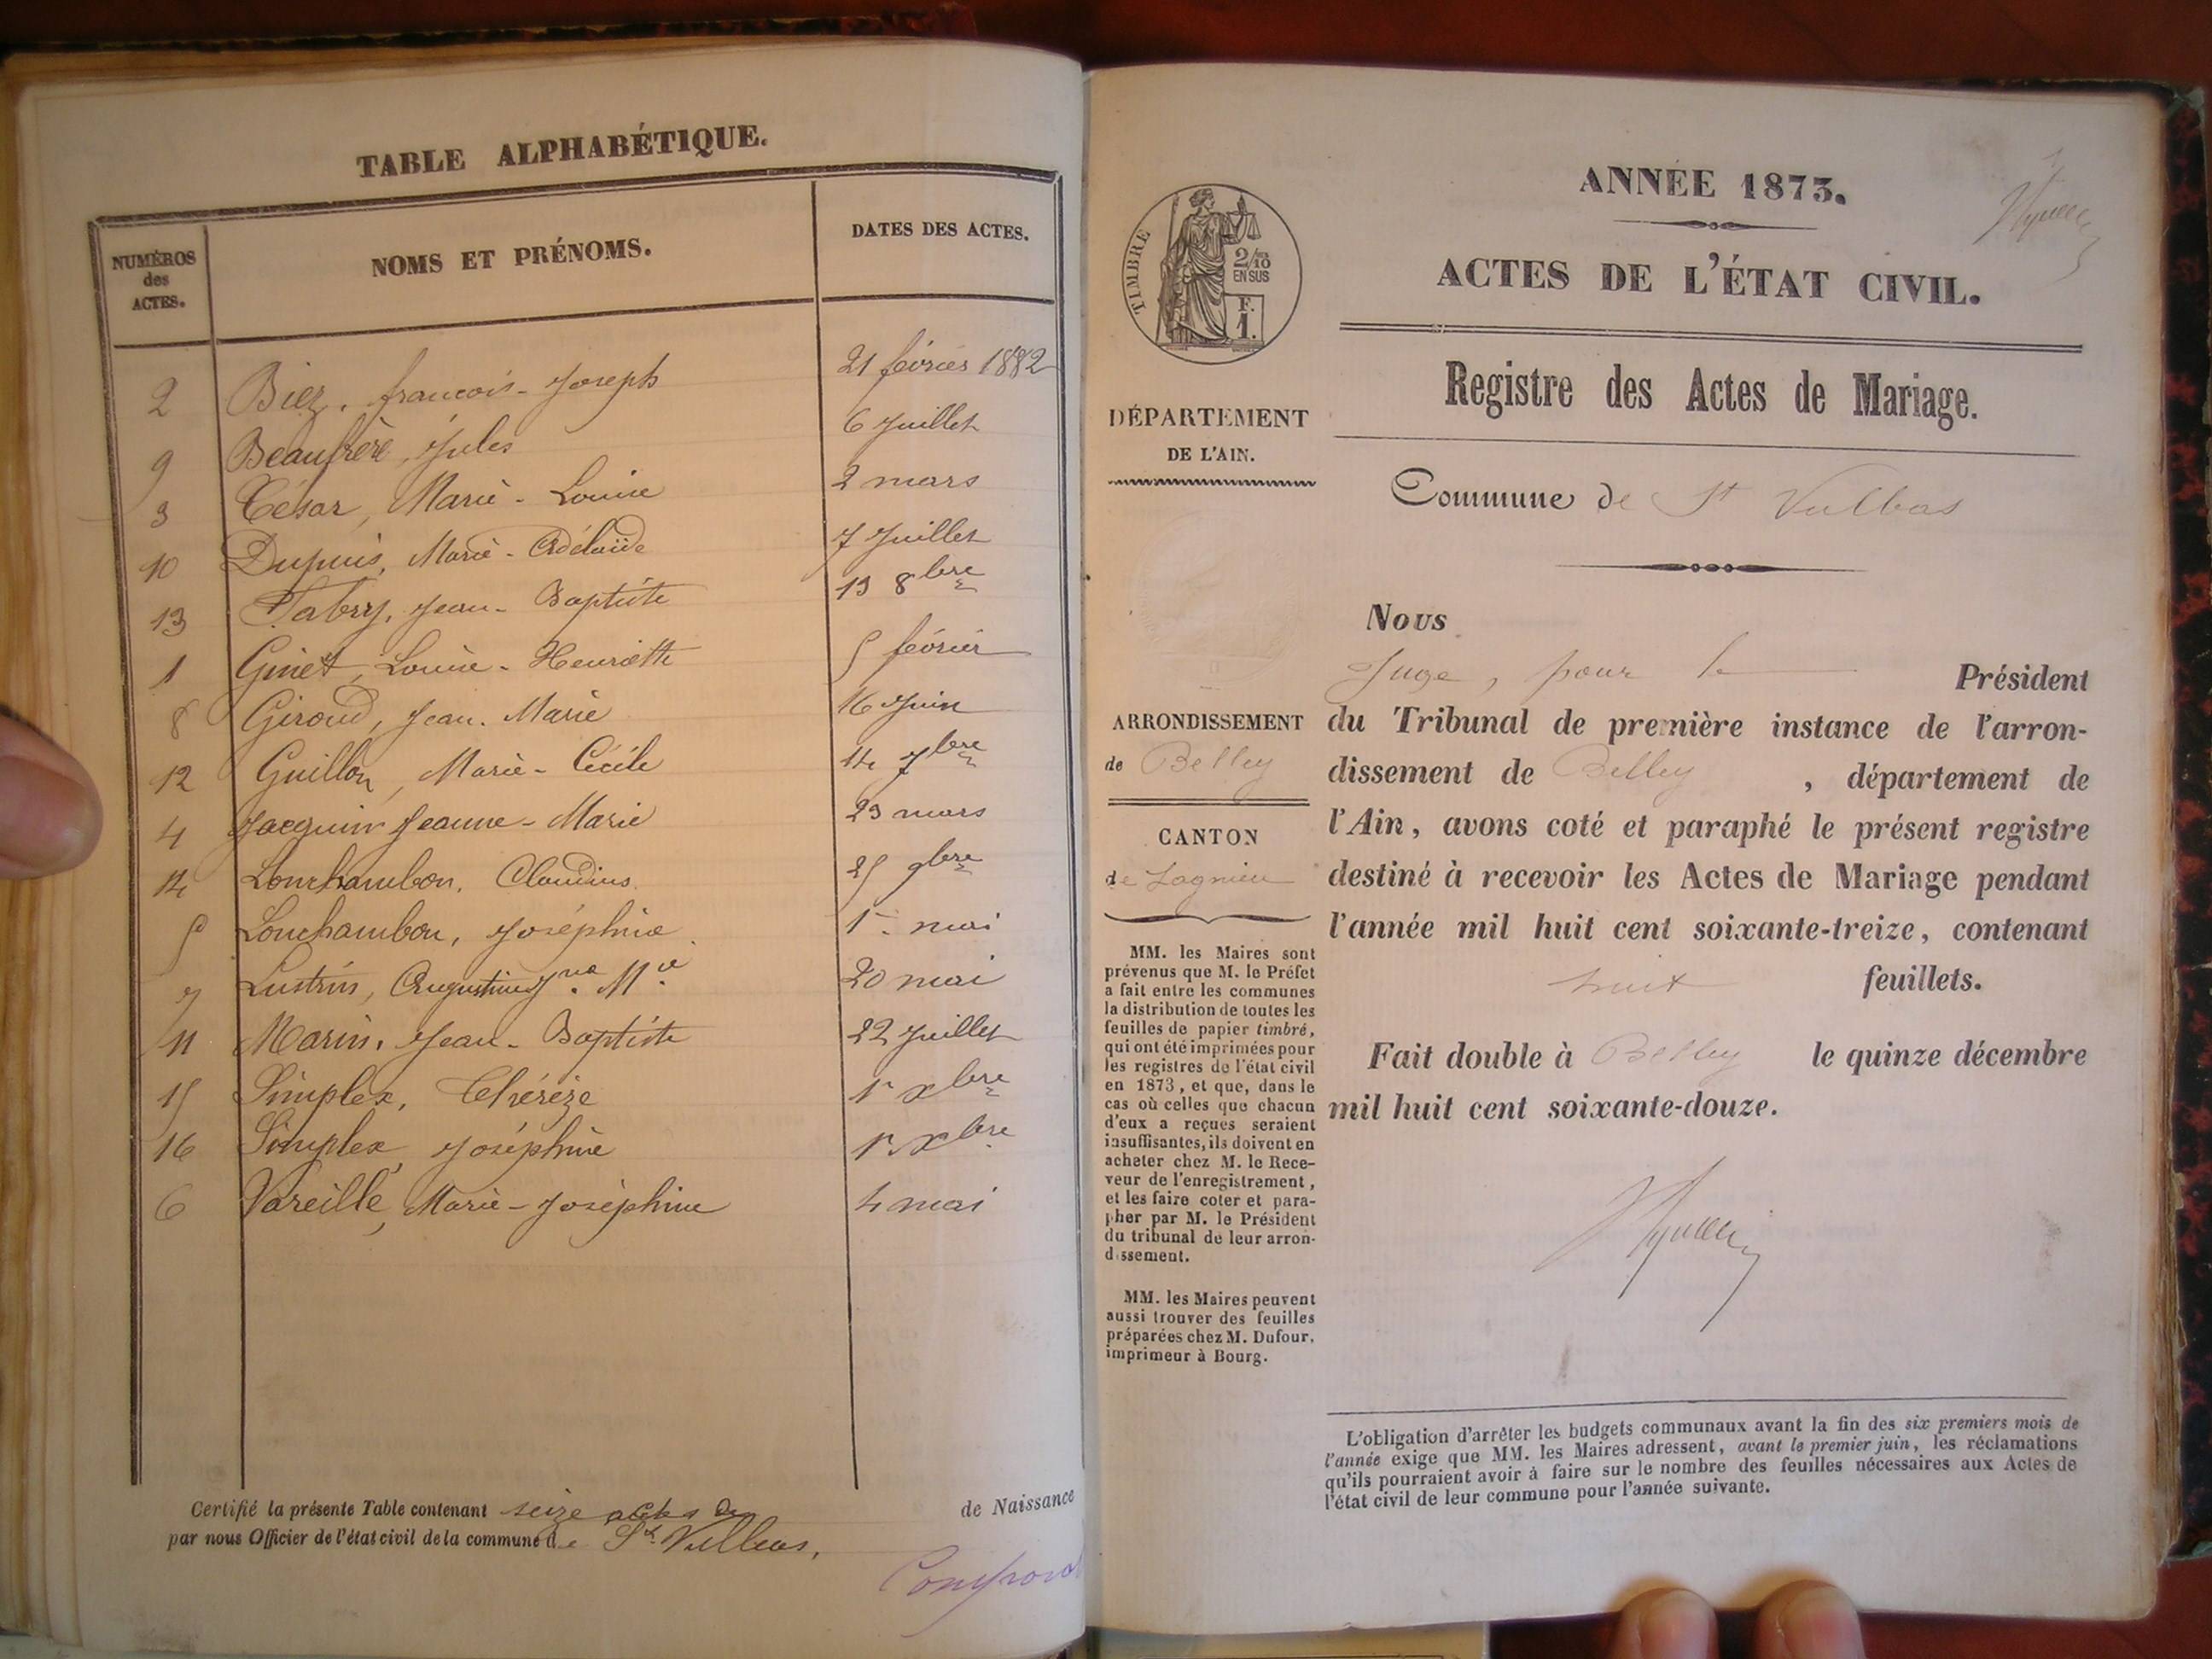 TABLE ALPHABÉTIQUE.
NUMÉROS des ACTES. NOMS ET PRÉNOMS. DATES DES ACTES.
2 Biez, francois-Joseph 21 février 1882
9 Beaufrère, Jules 6 Juillet
3 César, Marie-Louise 2 mars
10 Dupuis, Marie-Adélaïde 7 Juillet
13 Fabry, Jean-Baptiste 13 8bre
1 Ginet, Louise-Henriette 5 février
8 Giroud, Jean-Marie 16 Juin
12 Guillon, Marie-Cécile 14 7bre
4 Jacquin Jeanne-Marie 23 mars
14 Lonchambon, Claudius 25 9bre
5 Lonchambon, Joséphine 1er mai
7 Lustrin, Augustine Mie 20 mai
11 Marin, Jean-Baptiste 22 Juillet
15 Simplex, Thérèze 1r Xbre
16 Simplex, Joséphine 1r Xbre
6 Vareille, Marie-Joséphine 4 mai
Certifié la présente Table contenant seize actes de Naissance
par nous Officier de l'état civil de la commune de St Vulbas,
ANNÉE 1873.
ACTES DE L'ÉTAT CIVIL.
Registre des Actes de Mariage.
Commune de St Vulbas
TIMBRE
2/10 EN SUS
F. 1.
DÉPARTEMENT
DE L'AIN.
ARRONDISSEMENT
de Belley
CANTON
de Lagnieu
MM. les Maires sont
prévenus que M. le Préfet
a fait entre les communes
la distribution de toutes les
feuilles de papier timbré,
qui ont été imprimées pour
les registres de l'état civil
en 1873, et que, dans le
cas où celles que chacun
d'eux a reçues seraient
insuffisantes, ils doivent en
acheter chez M. le Rece-
veur de l'enregistrement,
et les faire coter et para-
pher par M. le Président
du tribunal de leur arron-
dissement.
MM. les Maires peuvent
aussi trouver des feuilles
préparées chez M. Dufour,
imprimeur à Bourg.
Nous
Juge, pour le Président
du Tribunal de première instance de l'arron-
dissement de Belley, département de
l'Ain, avons coté et paraphé le présent registre
destiné à recevoir les Actes de Mariage pendant
l'année mil huit cent soixante-treize, contenant
huit feuillets.
Fait double à Belley le quinze décembre
mil huit cent soixante-douze.
L'obligation d'arrêter les budgets communaux avant la fin des six premiers mois de
l'année exige que MM. les Maires adressent, avant le premier juin, les réclamations
qu'ils pourraient avoir à faire sur le nombre des feuilles nécessaires aux Actes de
l'état civil de leur commune pour l'année suivante.